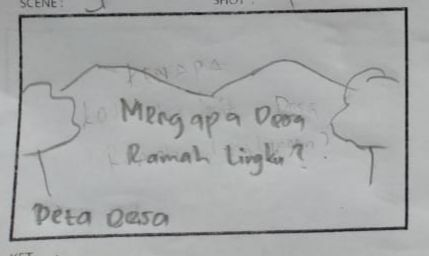 SCENE:
SHOT:
Mengapa Desa
Ramah Lingku?
Peta Desa